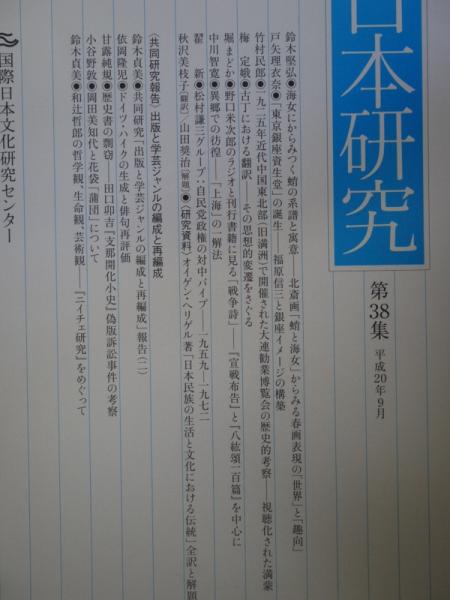 日本研究
第38集 平成20年9月
鈴木堅弘●海女にからみつく蛸の系譜と寓意――北斎画「蛸と海女」からみる春画表現の「世界」と「趣向」
戸矢理衣奈●「東京銀座資生堂」の誕生――福原信三と銀座イメージの構築
竹村民郎●一九二五年近代中国東北部(旧満洲)で開催された大連勧業博覧会の歴史的考察――視聴化された満蒙
梅 定娥●古丁における翻訳――その思想的変遷をさぐる
堀まどか●野口米次郎のラジオと刊行書籍に見る「戦争詩」――『宣戦布告』と『八紘頌一百篇』を中心に
中川智寛●異郷での彷徨――「上海」の一解法
翟 新●松村謙三グループ・自民党政権の対中パイプ――一九五九―一九七二
秋沢美枝子(翻訳)/山田奬治(解題)●〈研究資料〉オイゲン・ヘリゲル著「日本民族の生活と文化における伝統」全訳と解題
〈共同研究報告〉出版と学芸ジャンルの編成と再編成
鈴木貞美●共同研究「出版と学芸ジャンルの編成と再編成」報告(二)
依岡隆児●ドイツ・ハイクの生成と俳句再評価
甘露純規●歴史書の剽窃――田口卯吉『支那開化小史』偽版訴訟事件の考察
小谷野敦●岡田美知代と花袋「蒲団」について
鈴木貞美●和辻哲郎の哲学観、生命観、芸術観――『ニイチェ研究』をめぐって
国際日本文化研究センター